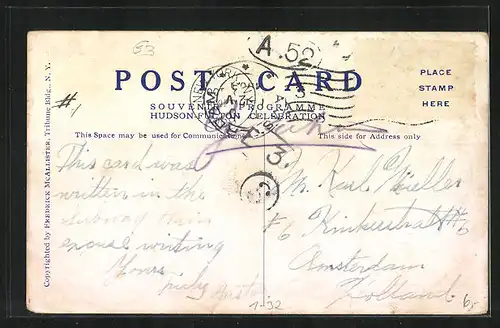 53
A.52
POST CARD
NEW YORK
3
SOUVENIR PROGRAMME
HUDSON-FULTON CELEBRATION
PLACE
STAMP
HERE
#1
This Space may be used for Communication
This side for Address only
Copyrighted by FREDRICK MCALLISTER, Tribune Bldg., N. Y.
This card was
written in the
subway train
excuse writing
Yours
truly
Mr. Karl Mueller
Amsterdam
Holland
1-32